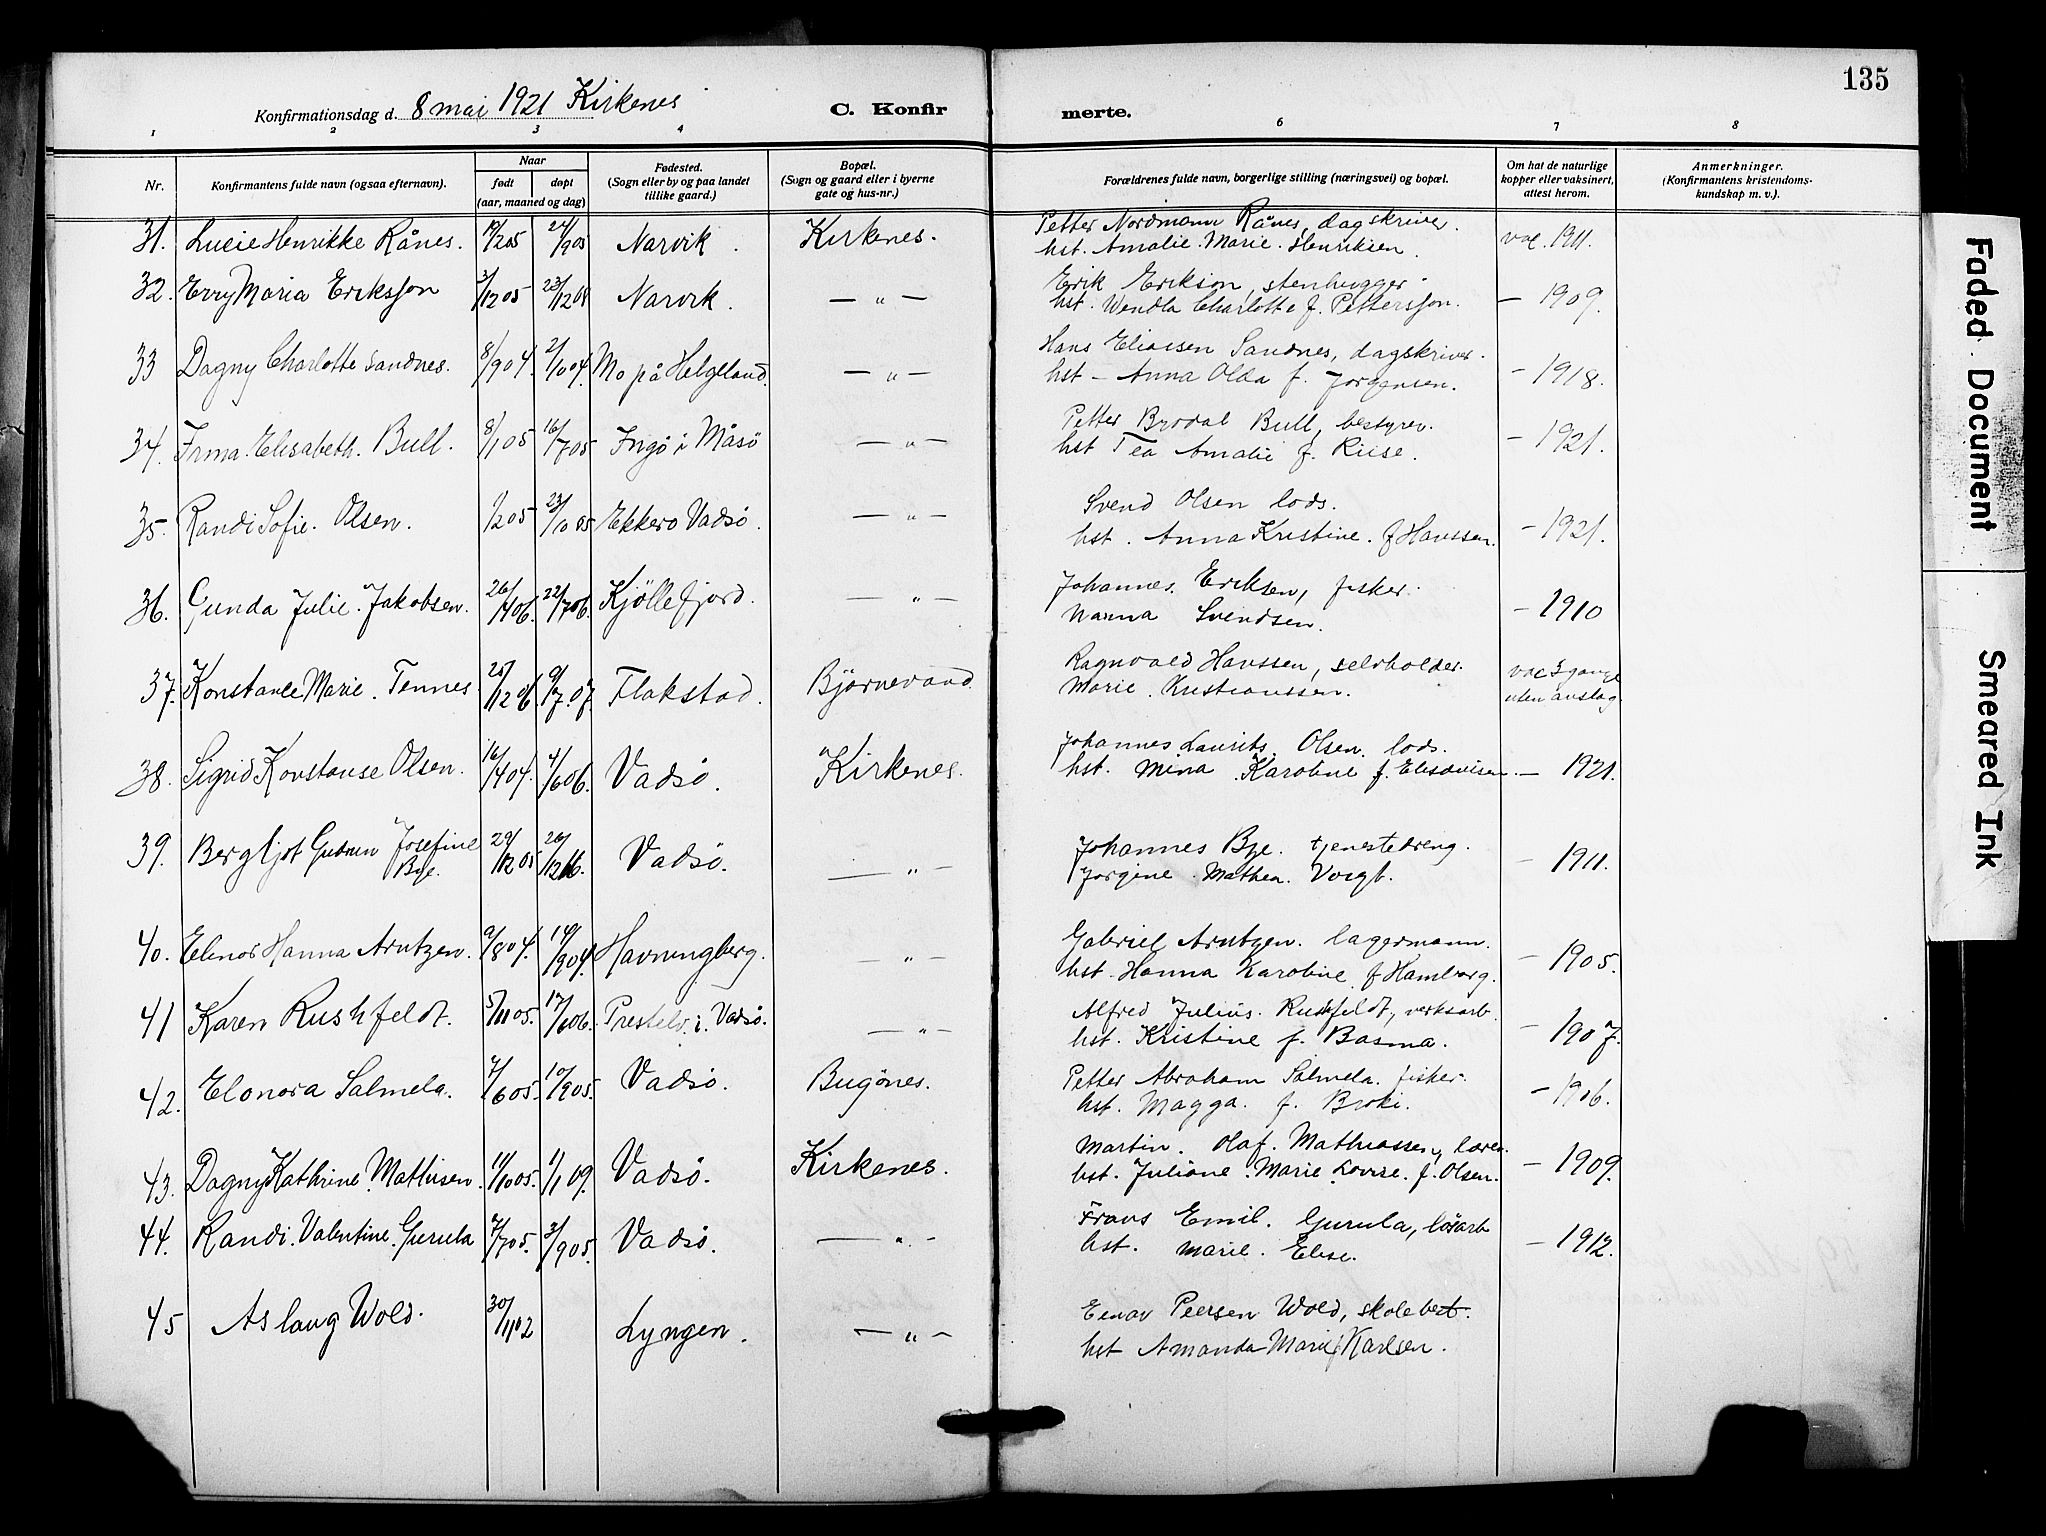 135
Konfirmationsdag d. 8 mai 1921 Kirkenes
C. Konfir merte.
1 2 3 4 6 7 8
Nr. Konfirmantens fulde navn (ogsaa efternavn). Naar født døpt (aar, maaned og dag) Fødested. (Sogn eller by og paa landet tillike gaard.) Bopæl. (Sogn og gaard eller i byerne gate og hus-nr.) Forældrenes fulde navn, borgerlige stilling (næringsvei) og bopæl. Om hat de naturlige kopper eller vaksinert, attest herom. Anmerkninger. (Konfirmantens kristendoms-kundskap m. v.).
31. Lucie Henrikke Rånes. 19/2 05 24/9 05 Narvik. Kirkenes. Petter Nordmann Rånes, dagskriver. vac. 1911.
hst. Amalie Marie Henriksen.
32. Erry Maria Eriksson 3/12 05 23/12 08 Narvik. — " — Erik Erikson, stenhugger — 1909.
hst. Wendla Charlotte f. Pettersson.
33 Dagny Charlotte Sandnes. 8/9 04. 2/10 04. Mo på Helgeland. — " — Hans Eliassen Sandnes, dagskriver. — 1918.
hst — Anna Olda f. Jorgensen.
34. Irma Elisabeth. Bull. 8/1 05 16/7 05 Ingö i Måsö — " — Petter Brodal Bull, bestyrer. — 1921.
hst Tea Amalie f. Riise.
35. Randi Sofie. Olsen. 1/2 05 23/10 05 Ekkerö Vadsö. — " — Svend Olsen lods. — 1921.
hst. Anna Kristine. f Hanssen.
36. Gunda Julie. Jakobsen. 26/4 06. 22/7 06. Kjöllefjord. — " — Johannes. Eriksen, fisker. — 1910
Nanna Svendsen.
37. Konstance Marie. Tennes 25/12 06. 9/7. 07. Flakstad. Björnevand Ragnvald Hanssen, selvholder. vac 3 gange
Marie. Kristianssen. uten anslag.
38. Sigrid Konstanse Olsen. 16/4 04. 4/6 06. Vadsö. Kirkenes. Johannes Laurits Olsen lods. — 1921.
hst. Mina Karoline f.
39. Bergljot Gudrun Josefine Bye. 29/12 05 Vadsö. — " — Johannes Bye. tjenestedreng. — 1911.
Jorgine Mathea. Voigt.
40. Elinor Hanna Arntzen. 9/8 04. 14/9 04. Havningberg. — " — Gabriel Arntzen. lagermann. — 1905.
hst. Hanna Karoline f Hamborg.
41 Karen Rushfeldt. 5/11 05. 17/6 06. Prestelv. i. Vadsö. — " — Alfred Julius. Rushfeldt, verksarb. — 1907.
hst. Kristine f. Basma.
42. Elonora Salmela. 7/6 05. 10/9 05. Vadsö. Bugönes. Petter Abraham Salmela. fisker. — 1906.
hst. Magga. f. Broki.
43. Dagny Kathrine Mathisen. 11/10 05. 11/1 09. Vadsö. Kirkenes. Martin. Olaf. Mathiassen, — 1909.
hst. Juliane. Marie Lovise. f. Olsen.
44. Randi. Valentine. Gurula 7/7 05. 3/9 05. Vadsö. — " — Frans Emil. Gurula, lösarb — 1912.
hst. Marie. Elise.
45 Aslaug Wold. 30/1 02 Lyngen. — " — Einar Peersen Wold, skolebest.
hst Amanda Marie f Karlsen.
Faded Document
Smeared Ink